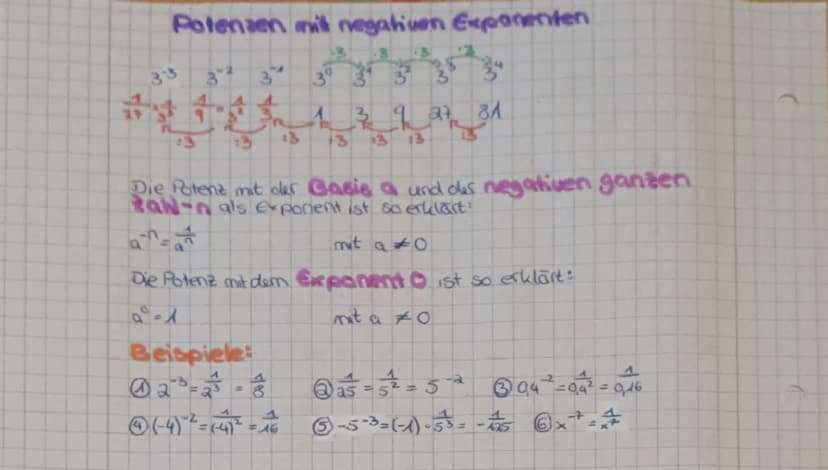 Potenzen mit negativen Exponenten
·3 ·3 ·3 ·3
3⁻³ 3⁻² 3⁻¹ 3⁰ 3¹ 3² 3³ 3⁴
1/27 = 1/3³ 1/9 = 1/3² 1/3 1 3 9 27 81
:3 :3 :3 :3 :3 :3 :3
Die Potenz mit der Basis a und der negativen ganzen
Zahl -n als Exponent ist so erklärt:
a⁻ⁿ = 1/aⁿ mit a ≠ 0
Die Potenz mit dem Exponent 0 ist so erklärt:
a⁰ = 1 mit a ≠ 0
Beispiele:
① 2⁻³ = 1/2³ = 1/8 ② 1/25 = 1/5² = 5⁻² ③ 0,4⁻² = 1/0,4² = 1/0,16
④ (-4)⁻² = 1/(-4)² = 1/16 ⑤ -5⁻³ = (-1) · 1/5³ = -1/125 ⑥ x⁻⁷ = 1/x⁷